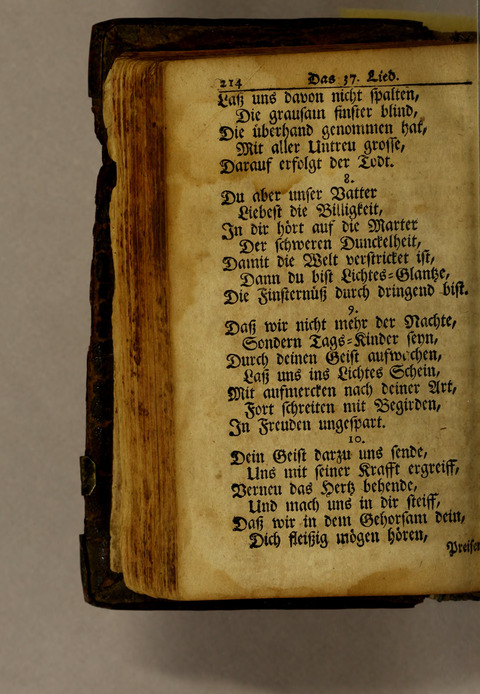 214 Das 37. Lied.
Laß uns davon nicht spalten,
Die grausam finster blind,
Die überhand genommen hat,
Mit aller Untreu grosse,
Darauf erfolgt der Todt.
8.
Du aber unser Vatter
Liebest die Billigkeit,
In dir hört auf die Marter
Der schweren Dunckelheit,
Damit die Welt verstricket ist,
Dann du bist Lichtes-Glantze,
Die Finsternüß durch dringend bist.
9.
Daß wir nicht mehr der Nachte,
Sondern Tags-Kinder seyn,
Durch deinen Geist aufwachen,
Laß uns ins Lichtes Schein,
Mit aufmercken nach deiner Art,
Fort schreiten mit Begirden,
In Freuden ungespart.
10.
Dein Geist darzu uns sende,
Uns mit seiner Krafft ergreiff,
Verneu das Hertz behende,
Und mach uns in dir steiff,
Daß wir in dem Gehorsam dein,
Dich fleißig mögen hören,
Preisen